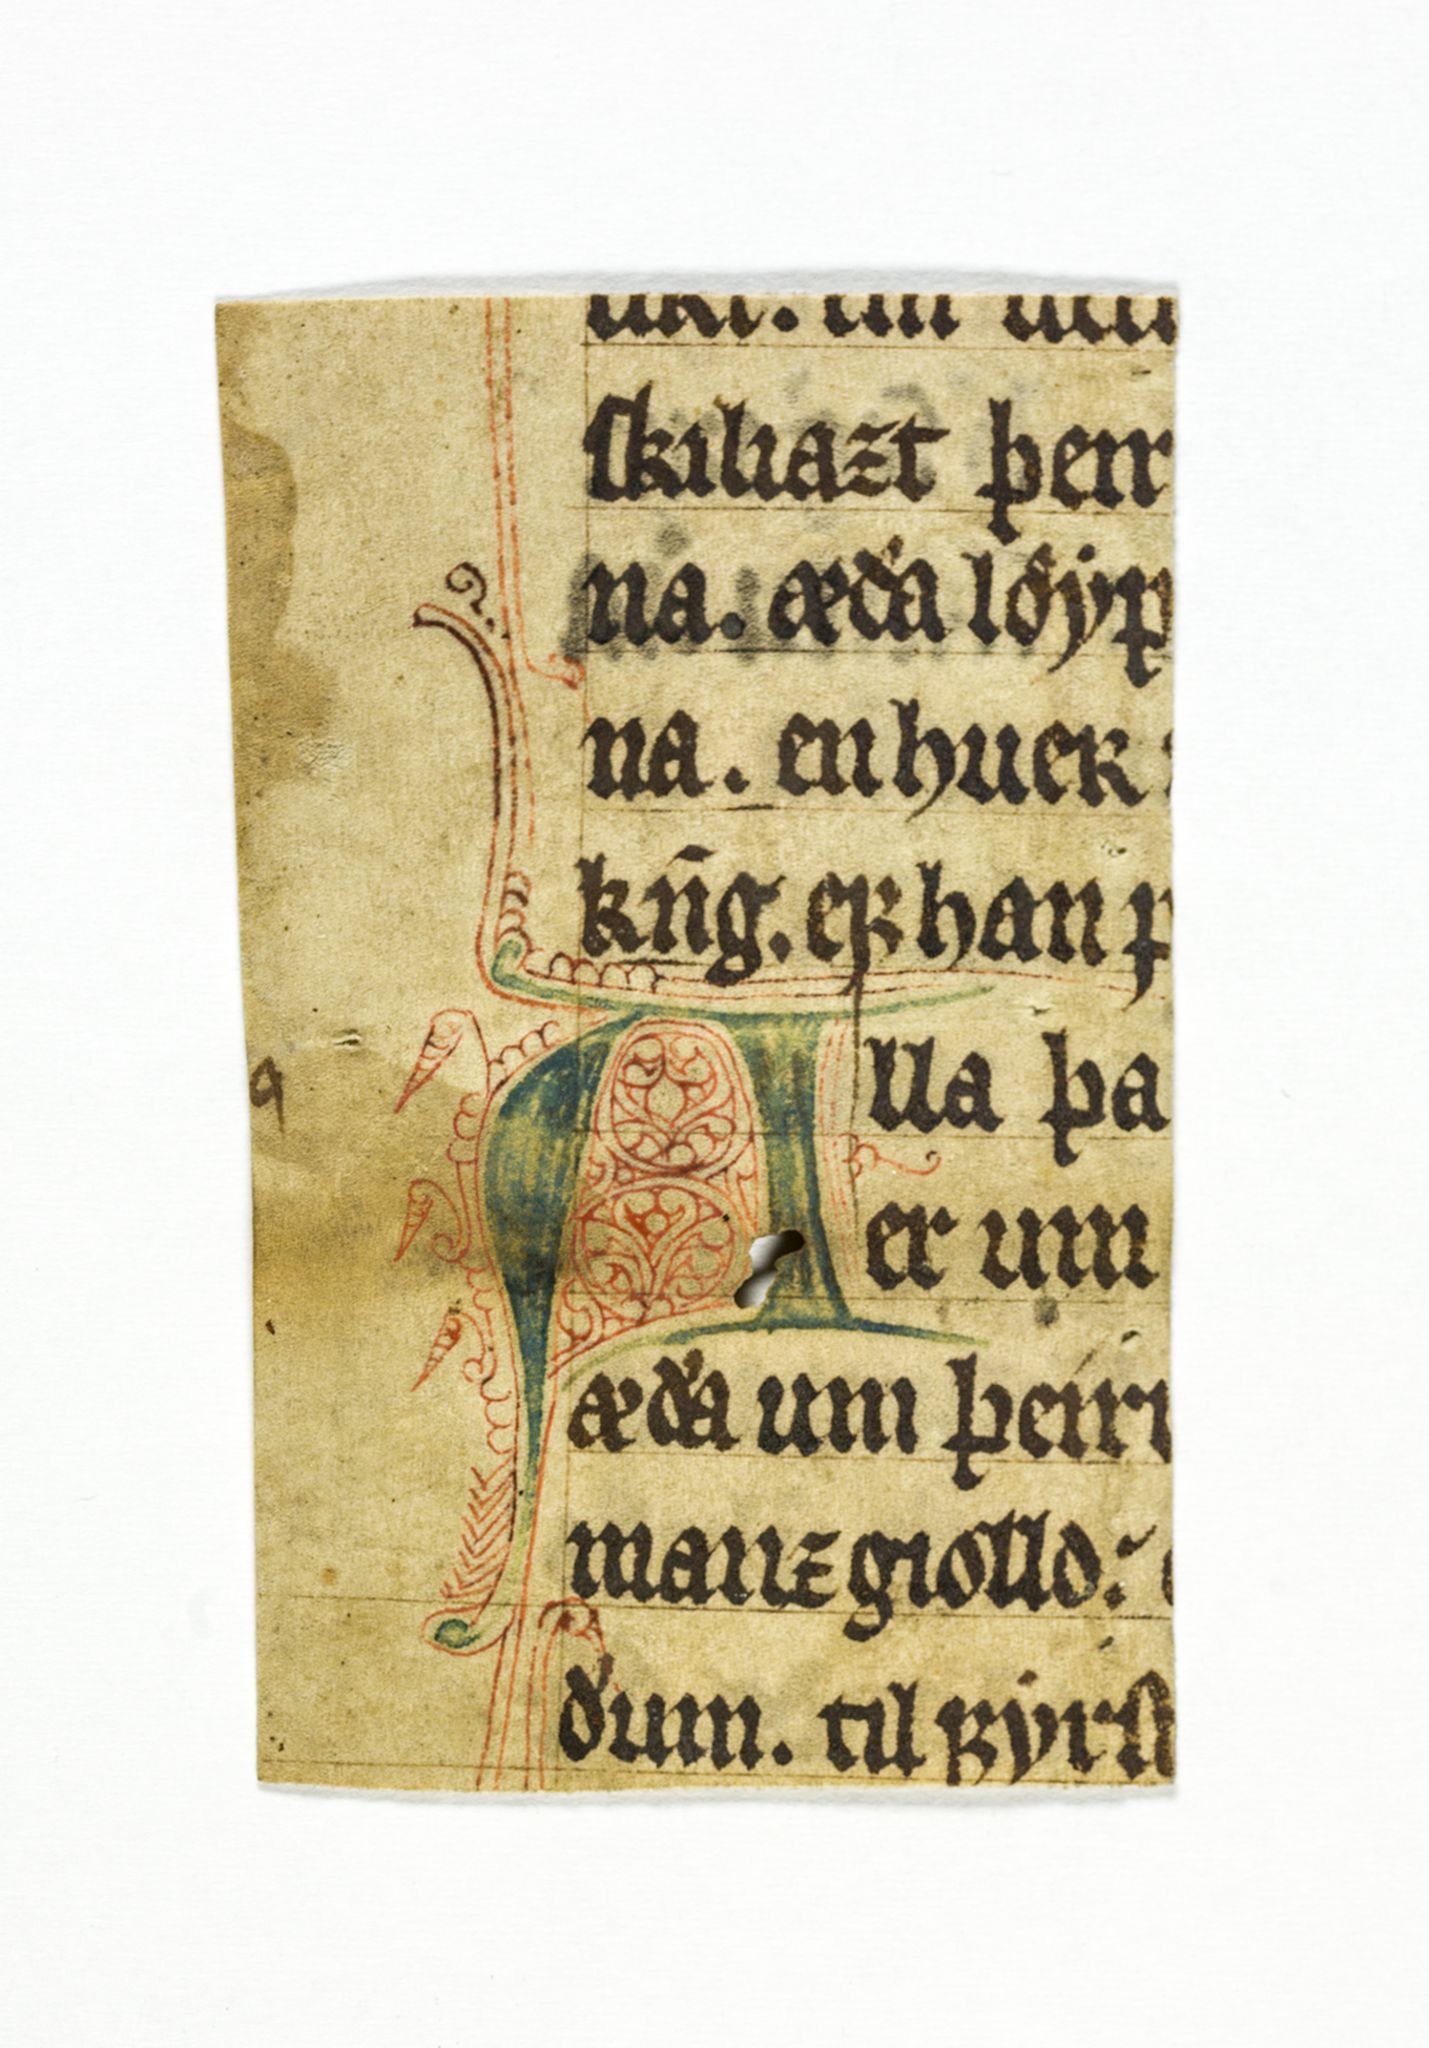 ſkiliazt þeir
na. æða löẏp
na. en huer
kn̄g. er han p
a
Alla þa
er um
æða um þeirr
mannz giolld. 
ðum. til kẏrſ